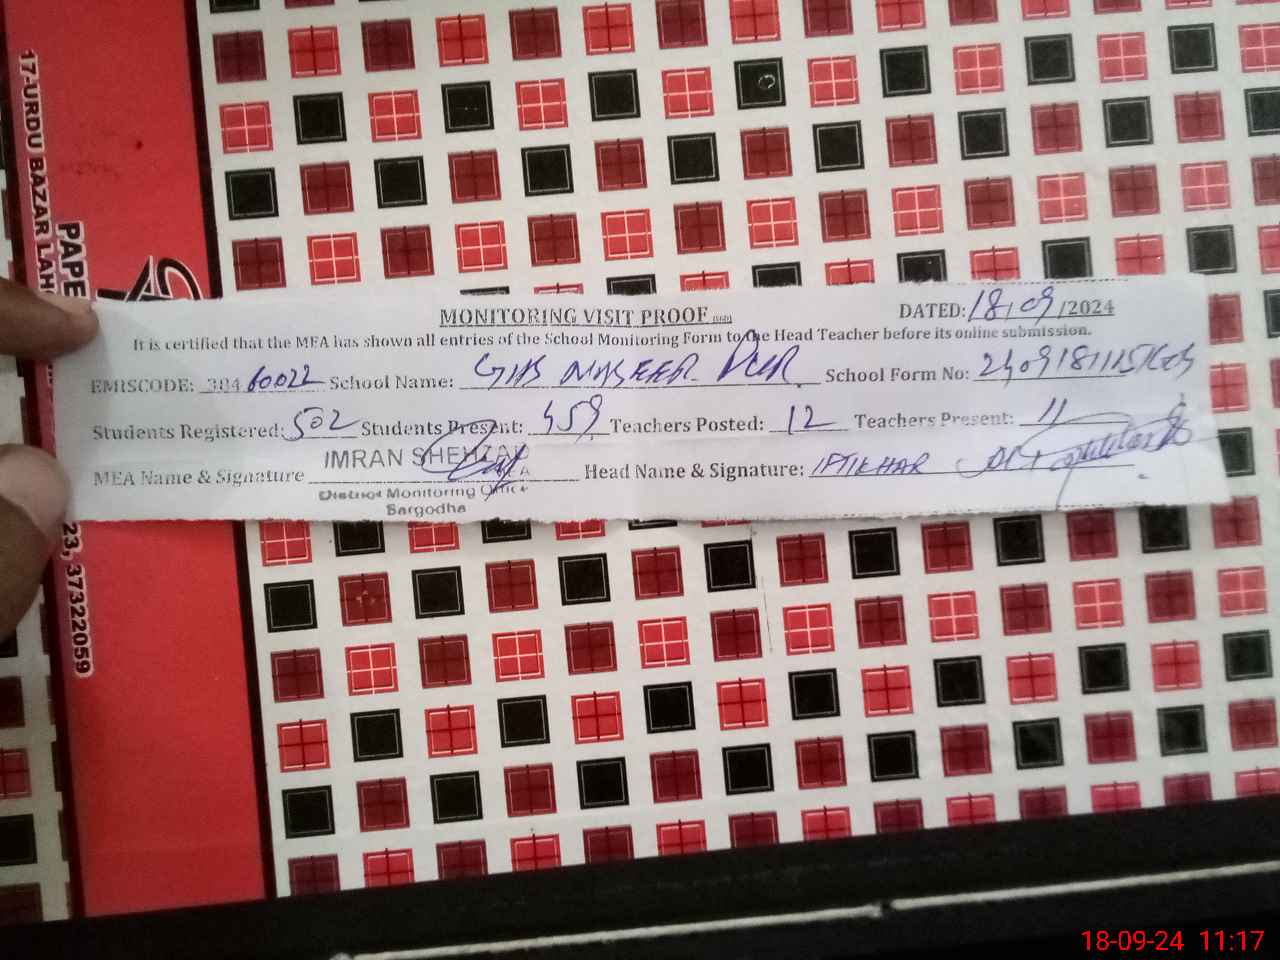 17-URDU BAZAR LAH
PAPE
23, 37322059
MONITORING VISIT PROOF
DATED: 18/09/2024
It is certified that the MEA has shown all entries of the School Monitoring Form to the Head Teacher before its online submission.
EMISCODE: 384 60022 School Name: GHS NASEER PUR School Form No:
Students Registered: 502 Students Present: 459 Teachers Posted: 12 Teachers Present: 11
MEA Name & Signature IMRAN SHEHZAD Head Name & Signature: IFTIKHAR
MEA
District Monitoring Office
Sargodha
18-09-24 11:17